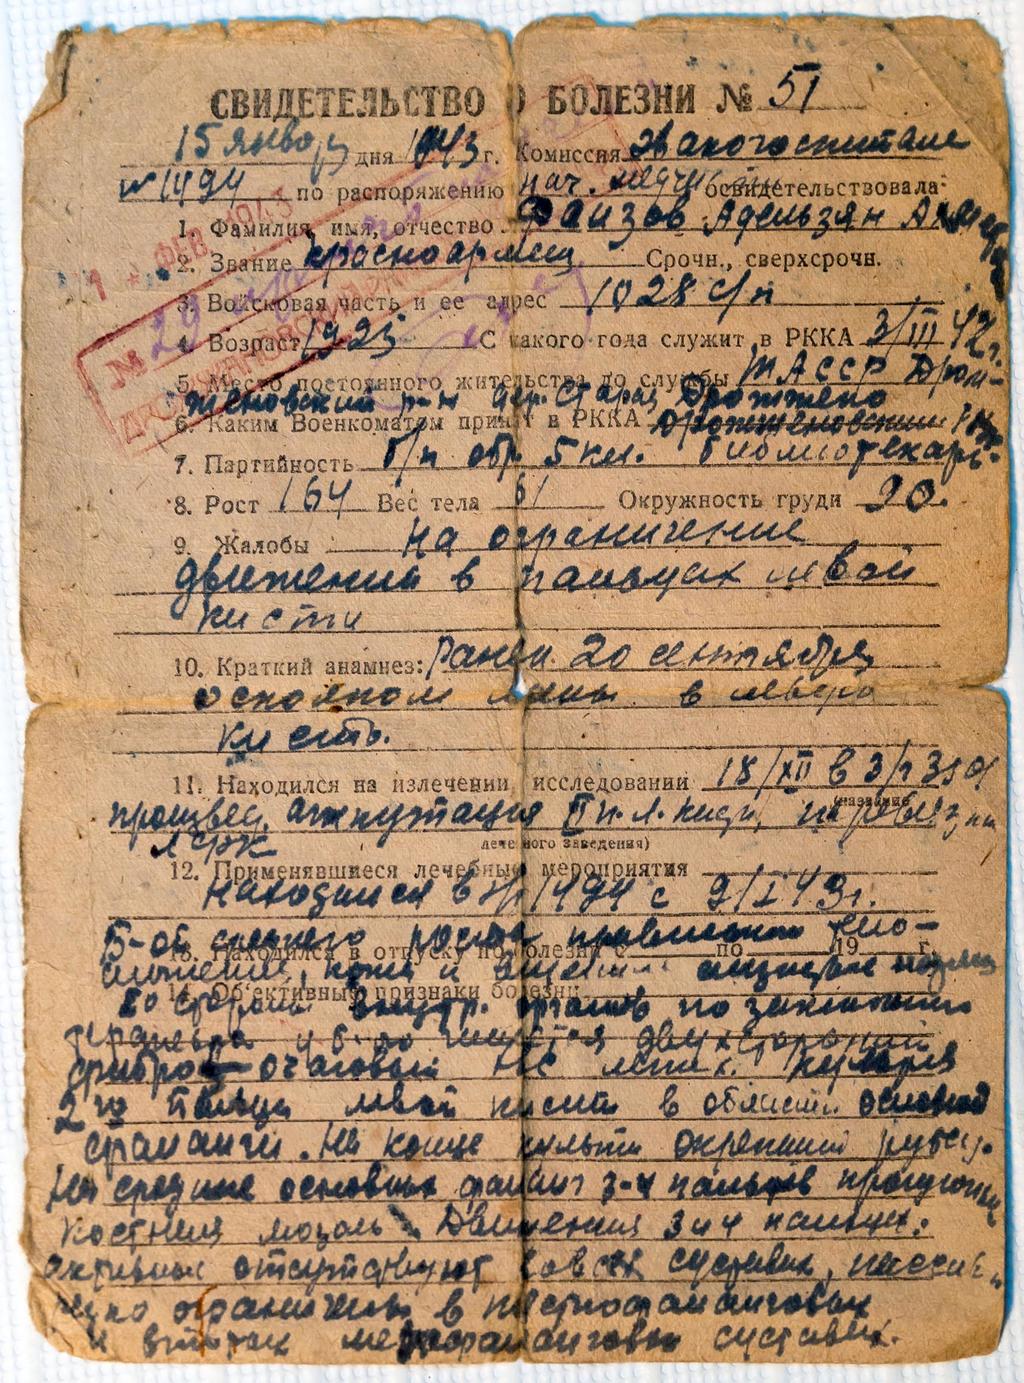 СВИДЕТЕЛЬСТВО О БОЛЕЗНИ № 51
15 января дня 1943 г. Комиссия Эвакогоспиталя
№ 1494 по распоряжению нач. медчасти освидетельствовала
1. Фамилия, имя, отчество Фаизов Адельзян
2. Звание красноармеец Срочн., сверхсрочн.
3. Войсковая часть и ее адрес 1028 с/п
4. Возраст 1925 С какого года служит в РККА 3/III 42 г.
5. Место постоянного жительства до службы ТАССР Дрож-
жановский р-н дер. Старая Дрожжено
6. Каким Военкоматом принят в РККА Дрожжановским
7. Партийность б/п обр. 5 кл. библиотекарь
8. Рост 164 Вес тела 61 Окружность груди 90.
9. Жалобы На ограничение
движений в пальцах левой
кисти
10. Краткий анамнез: Ранен 20 сентября
осколком мины в левую
кисть.
11. Находился на излечении, исследовании 18/XII в э/г
(название
произвед. ампутация II п. л. кисти,
лечебного заведения)
ЛФК
12. Применявшиеся лечебные мероприятия
Находился в э/г 1494 с 9/I 43 г.
13. Находился в отпуску по болезни с по 19 г.
Б-ой среднего роста правильного тело-
сложения, кожа и
14. Об'ективные признаки болезни
Со стороны внутр. органов по заключению
терапевта у б-го имеется двухсторонний
фиброз-очаговый твс легких. Культя
2го пальца левой кисти в области основной
фаланги. На конце культи окрепший рубец.
На средине основных фаланг 3-4 пальцев
костная мозоль. Движения 3 и 4 пальцев:
активные отсутствуют во всех суставах,
резко ограничены в пястнофаланговых
и вторых межфаланговых суставах.
1 ФЕВ 1943
№ 29